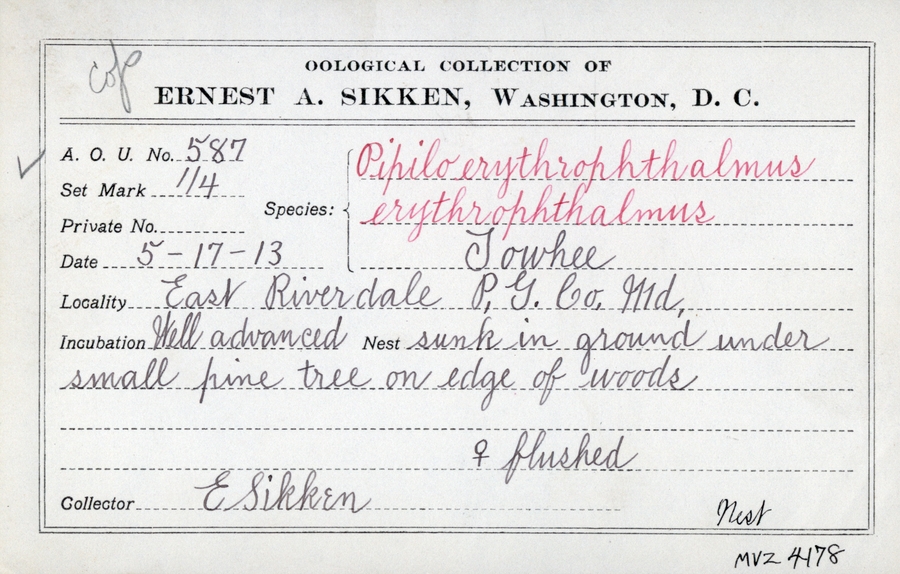 cop
OOLOGICAL COLLECTION OF
ERNEST A. SIKKEN, WASHINGTON, D. C.
A. O. U. No. 587
Pipilo erythrophthalmus
Set Mark 1/4
Species: erythrophthalmus
Private No.
Date 5-17-13
Towhee
Locality East Riverdale P. G. Co. Md.
Incubation Well advanced Nest sunk in ground under
small pine tree on edge of woods
♀ flushed
Collector E Sikken
Nest
MVZ 4178